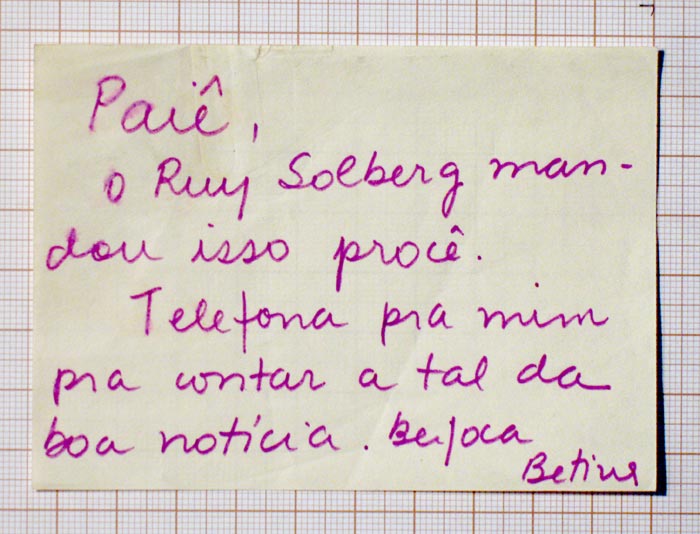 Paiê,
o Ruy Solberg man-
dou isso procê.
Telefona pra mim
pra contar a tal da
boa notícia. Beijoca
Betina